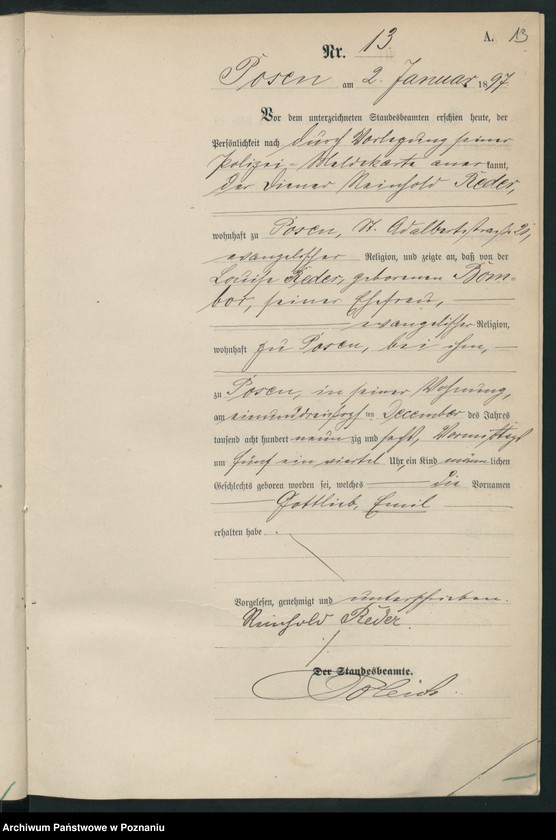 A. 13
Nr. 13.
Posen am 2. Januar 1897
Vor dem unterzeichneten Standesbeamten erschien heute, der
Persönlichkeit nach durch Vorlegung seiner
Polizei-Meldekarte aner kannt,
der Diener Reinhold Reder,
wohnhaft zu Posen, St. Adalbertstraße
evangelischer Religion, und zeigte an, daß von der
Louise Reder, geborenen Dom-
bor, seiner Ehefrau,
evangelischer Religion,
wohnhaft zu Posen, bei ihm,
zu Posen, in seiner Wohnung,
am einunddreißigsten December des Jahres
tausend acht hundert neun zig und sechs, Vormittags
um fünf ein viertel Uhr, ein Kind männ lichen
Geschlechts geboren worden sei, welches die Vornamen
Gottlieb, Emil
erhalten habe.
Vorgelesen, genehmigt und unterschrieben.
Reinhold Reder.
Der Standesbeamte.
Archiwum Państwowe w Poznaniu